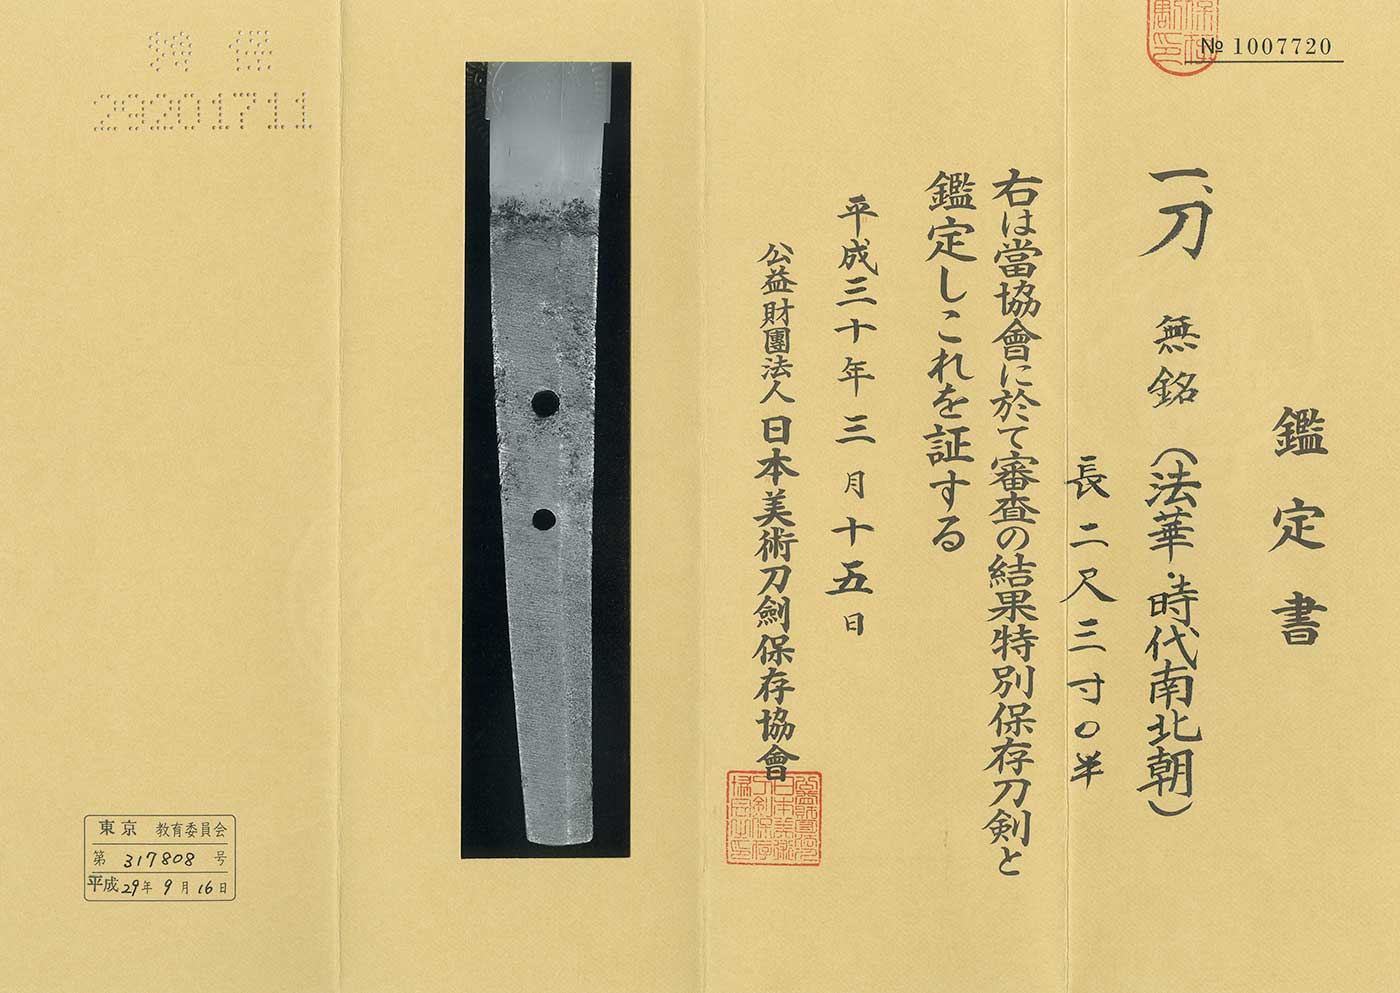 № 1007720
鑑定書
一、刀 無銘(法華・時代南北朝)
長二尺三寸〇半
右は當協會に於て審査の結果特別保存刀剣と
鑑定しこれを証する
平成三十年三月十五日
公益財團法人 日本美術刀劍保存協會
特保
29201711
東京 教育委員会
第 317808 号
平成 29年 9月 16日